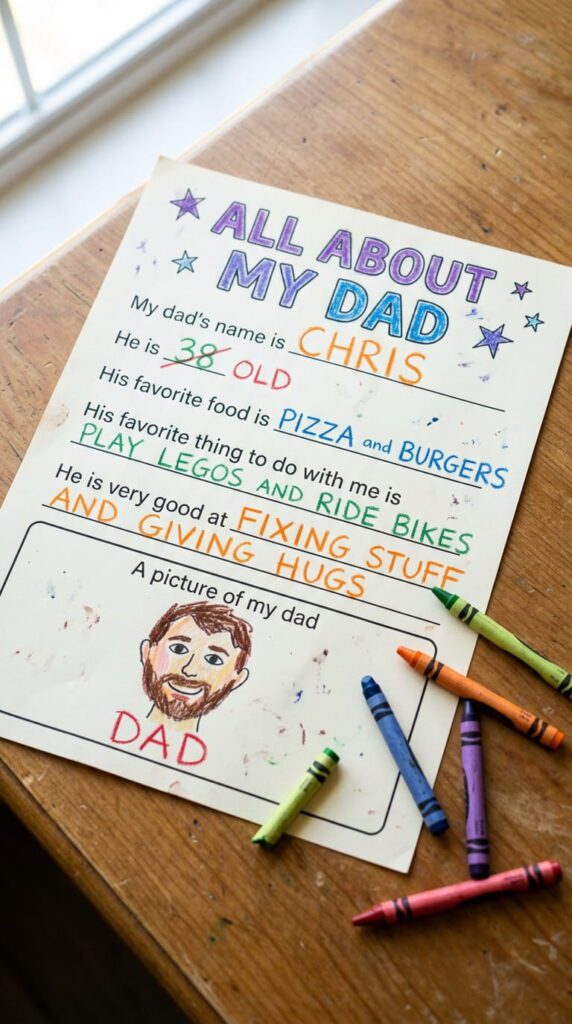 ALL ABOUT
MY DAD
My dad's name is CHRIS
He is 38 OLD
His favorite food is PIZZA and BURGERS
His favorite thing to do with me is
PLAY LEGOS AND RIDE BIKES
He is very good at FIXING STUFF
AND GIVING HUGS
A picture of my dad
DAD